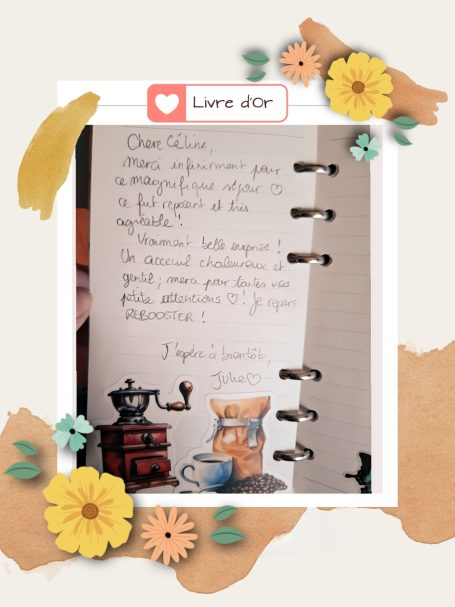 Livre d'Or
Chere Céline,
merci infiniment pour
ce magnifique séjour ♡
ce fut reposant et très
agréable !
Vraiment belle surprise !
Un acceuil chaleureux et
gentil ; merci pour toutes vos
petite attentions ♡ ! Je repars
REBOOSTER !
J'espère à bientôt,
Julie ♡